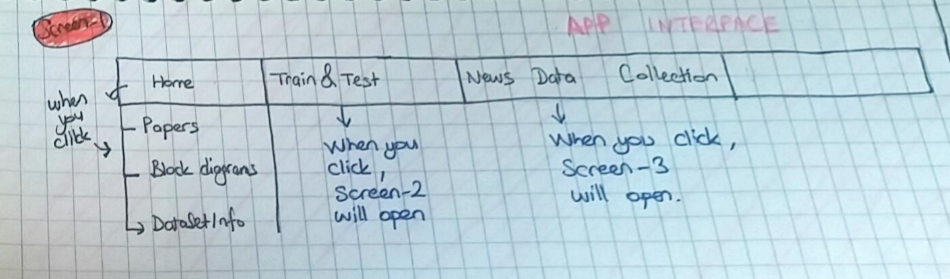 Screen-1
APP INTERFACE
Home
Train & Test
News Data Collection
when
you
click
Papers
Block digrans
DataSetInfo
When you
click,
Screen-2
will open
When you click,
Screen-3
will open.